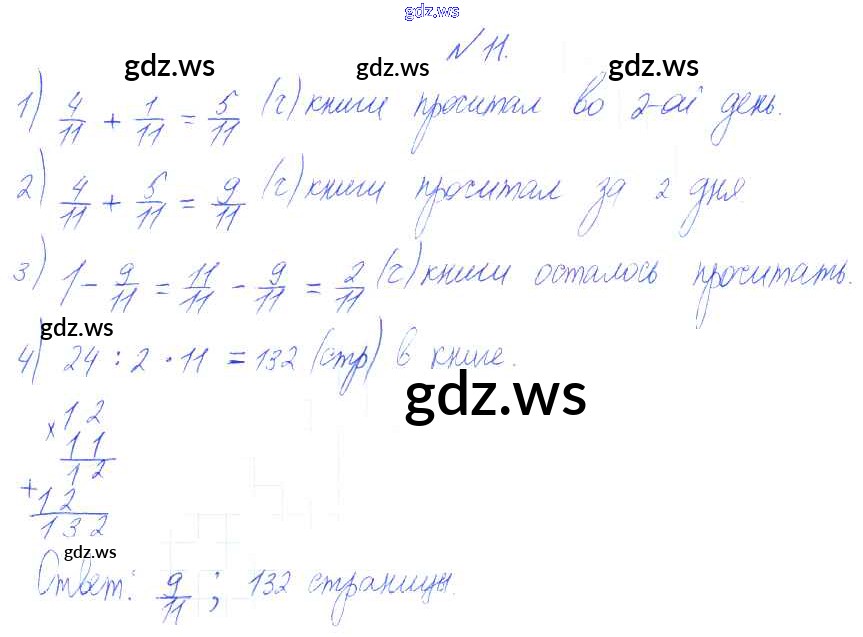 gdz.ws
№ 11.
gdz.ws gdz.ws gdz.ws
1) 4/11 + 1/11 = 5/11 (ч) книги прочитал во 2-ой день.
2) 4/11 + 5/11 = 9/11 (ч) книги прочитал за 2 дня.
3) 1 - 9/11 = 11/11 - 9/11 = 2/11 (ч) книги осталось прочитать.
gdz.ws
4) 24 : 2 · 11 = 132 (стр) в книге.
gdz.ws
× 12
11
12
+ 12
132
gdz.ws
Ответ: 9/11 ; 132 страницы.